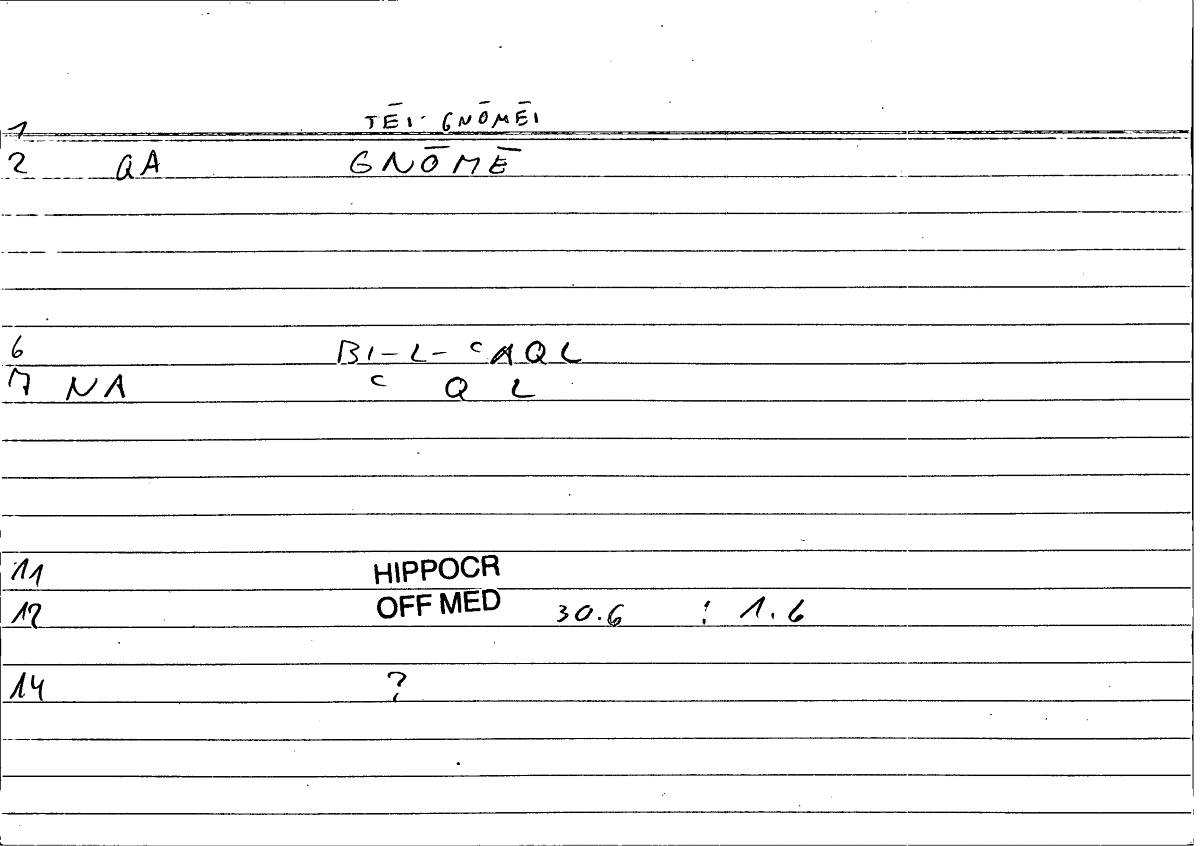 1 TĒI· GNŌMĒI
2 QA GNŌMĒ
6 BI-L-ᶜAQL
7 NA ᶜ Q L
11 HIPPOCR
12 OFF MED 30.6 : 1.6
14 ?